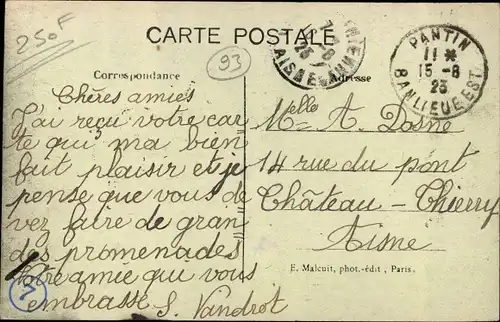 250F
CARTE POSTALE
93
PANTIN
11 *
15-8
23
BANLIEUE EST
AISNE
Correspondance
Adresse
Chères amies
J'ai reçu votre car
te qui ma bien
fait plaisir et je
pense que vous de
vez faire de gran
des promenades
Votre amie qui vous
embrasse S. Vandrot
Melle A. Dosne
14 rue du pont
Château-Thierry
Aisne
E. Malcuit, phot.-édit, Paris.
7